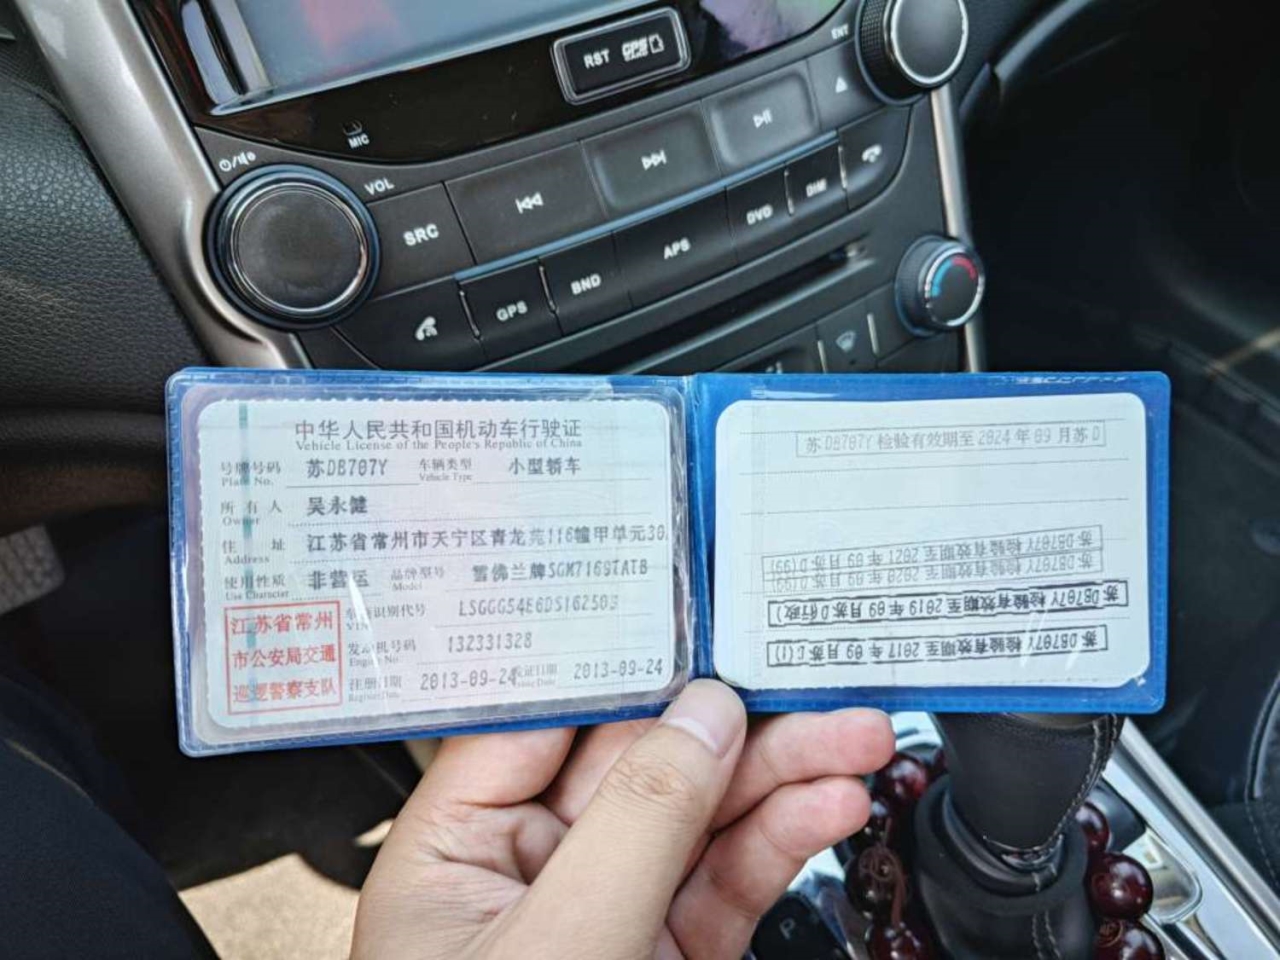 RST GPS
ENT
MIC
VOL
SRC
GPS
BND
APS
DVD
DIM
中华人民共和国机动车行驶证
Vehicle License of the People's Republic of China
号牌号码 苏DB707Y 车辆类型 小型轿车
Plate No. Vehicle Type
所有人 吴永健
Owner
住址 江苏省常州市天宁区青龙苑116幢甲单元30
Address
使用性质 非营运 品牌型号 雪佛兰牌SGM7169TATB
Use Character Model
江苏省常州
市公安局交通
巡逻警察支队
识别代号 LSGGG54E6DS162503
发动机号码 132331328
Engine No.
注册日期 2013-09-24 发证日期 2013-09-24
Register Date Issue Date
苏DB707Y检验有效期至2024年09月苏D
苏DB707Y 检验有效期至2021年09月苏D(99)
苏DB707Y 检验有效期至2020年09月苏D(99)
苏DB707Y 检验有效期至2019年09月苏D(行政)
苏DB707Y 检验有效期至2017年09月苏D(1)
P